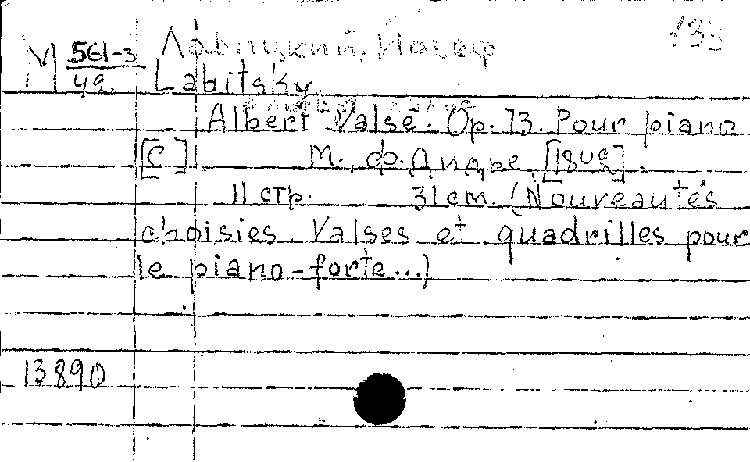 М 561-3 Лабицкий, Иосеф 133
49 Labitsky
Albert Valse. Op. 73. Pour piano
[C] М., ф. Андре,
11 стр. 31 cm. (Nouveautés
choisies. Valses et quadrilles pour
le piano-forte...)
13890